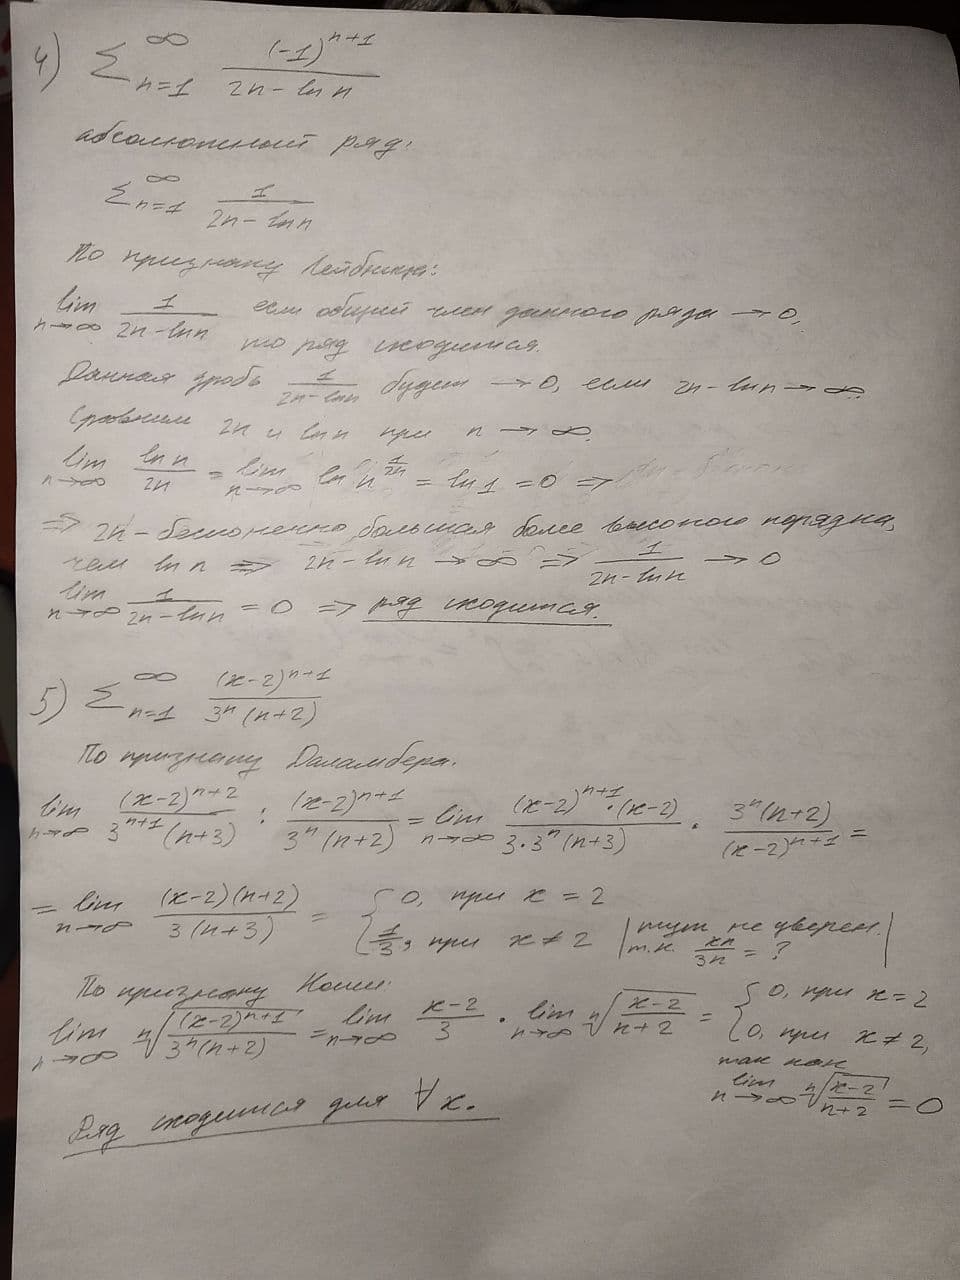 4) ∑_{n=1}^{∞} (-1)^{n+1} / (2n - ln n)
абсолютный ряд:
∑_{n=1}^{∞} 1 / (2n - ln n)
По признаку Лейбница:
lim_{n→∞} 1 / (2n - ln n) если общий член данного ряда → 0,
то ряд сходится.
Данная дробь 1 / (2n - ln n) будет → 0, если 2n - ln n → ∞.
Сравним 2n и ln n при n → ∞.
lim_{n→∞} ln n / 2n = lim_{n→∞} ln n^{1/2n} = ln 1 = 0 =>
=> 2n - бесконечно большая более высокого порядка,
чем ln n => 2n - ln n → ∞ => 1 / (2n - ln n) → 0
lim_{n→∞} 1 / (2n - ln n) = 0 => ряд сходится.
5) ∑_{n=1}^{∞} (x-2)^{n+1} / 3^n (n+2)
По признаку Даламбера.
lim_{n→∞} (x-2)^{n+2} / 3^{n+1} (n+3) : (x-2)^{n+1} / 3^n (n+2) = lim_{n→∞} (x-2)^{n+1} · (x-2) / 3·3^n (n+3) · 3^n (n+2) / (x-2)^{n+1} =
= lim_{n→∞} (x-2)(n+2) / 3(n+3) = { 0, при x = 2
1/3, при x ≠ 2 | тут не уверен.
т.к. xn / 3n = ? |
По признаку Коши:
lim_{n→∞} ⁿ√((x-2)^{n+1} / 3^n (n+2)) = lim_{n→∞} (x-2) / 3 · lim_{n→∞} ⁿ√((x-2) / (n+2)) = { 0, при x = 2
0, при x ≠ 2,
так как
lim_{n→∞} ⁿ√((x-2) / (n+2)) = 0
Ряд сходится для ∀x.